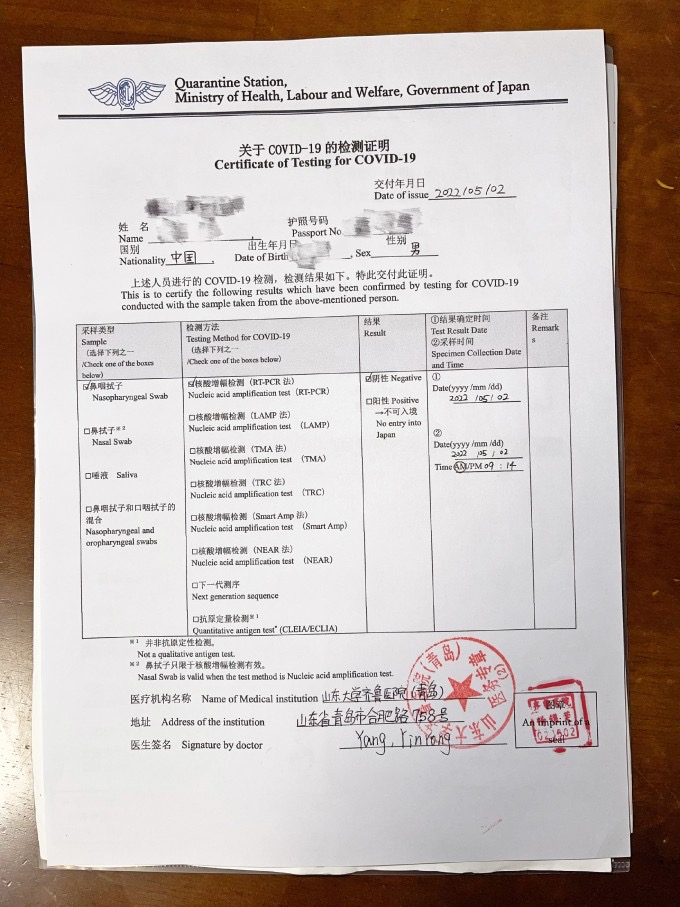 Quarantine Station,
Ministry of Health, Labour and Welfare, Government of Japan
关于 COVID-19 的检测证明
Certificate of Testing for COVID-19
交付年月日
Date of issue 2022/05/02
姓 名
Name
护照号码
Passport No
国别
Nationality 中国 .
出生年月日
Date of Birth
性别
, Sex 男
上述人员进行的 COVID-19 检测，检测结果如下。特此交付此证明。
This is to certify the following results which have been confirmed by testing for COVID-19
conducted with the sample taken from the above-mentioned person.
采样类型
Sample
（选择下列之一
/Check one of the boxes
below）
检测方法
Testing Method for COVID-19
（选择下列之一
/Check one of the boxes below）
结果
Result
①结果确定时间
Test Result Date
②采样时间
Specimen Collection Date
and Time
备注
Remark
s
☑鼻咽拭子
Nasopharyngeal Swab
□鼻拭子※2
Nasal Swab
□唾液 Saliva
□鼻咽拭子和口咽拭子的
混合
Nasopharyngeal and
oropharyngeal swabs
☑核酸增幅检测（RT-PCR 法）
Nucleic acid amplification test （RT-PCR）
□核酸增幅检测（LAMP 法）
Nucleic acid amplification test （LAMP）
□核酸增幅检测（TMA 法）
Nucleic acid amplification test （TMA）
□核酸增幅检测（TRC 法）
Nucleic acid amplification test （TRC）
□核酸增幅检测（Smart Amp 法）
Nucleic acid amplification test （Smart Amp）
□核酸增幅检测（NEAR 法）
Nucleic acid amplification test （NEAR）
□下一代测序
Next generation sequence
□抗原定量检测※1
Quantitative antigen test* (CLEIA/ECLIA)
☑阴性 Negative
□阳性 Positive
→不可入境
No entry into
Japan
①
Date(yyyy /mm /dd)
2022 /05/ 02
②
Date(yyyy /mm /dd)
2022 /05 / 02
Time AM/PM 09 : 14
※1 并非抗原定性检测。
Not a qualitative antigen test.
※2 鼻拭子只限于核酸增幅检测有效。
Nasal Swab is valid when the test method is Nucleic acid amplification test.
医疗机构名称 Name of Medical institution 山东大学齐鲁医院（青岛）
地址 Address of the institution 山东省青岛市合肥路758号
医生签名 Signature by doctor Yang, Yinrong
An imprint of a
seal